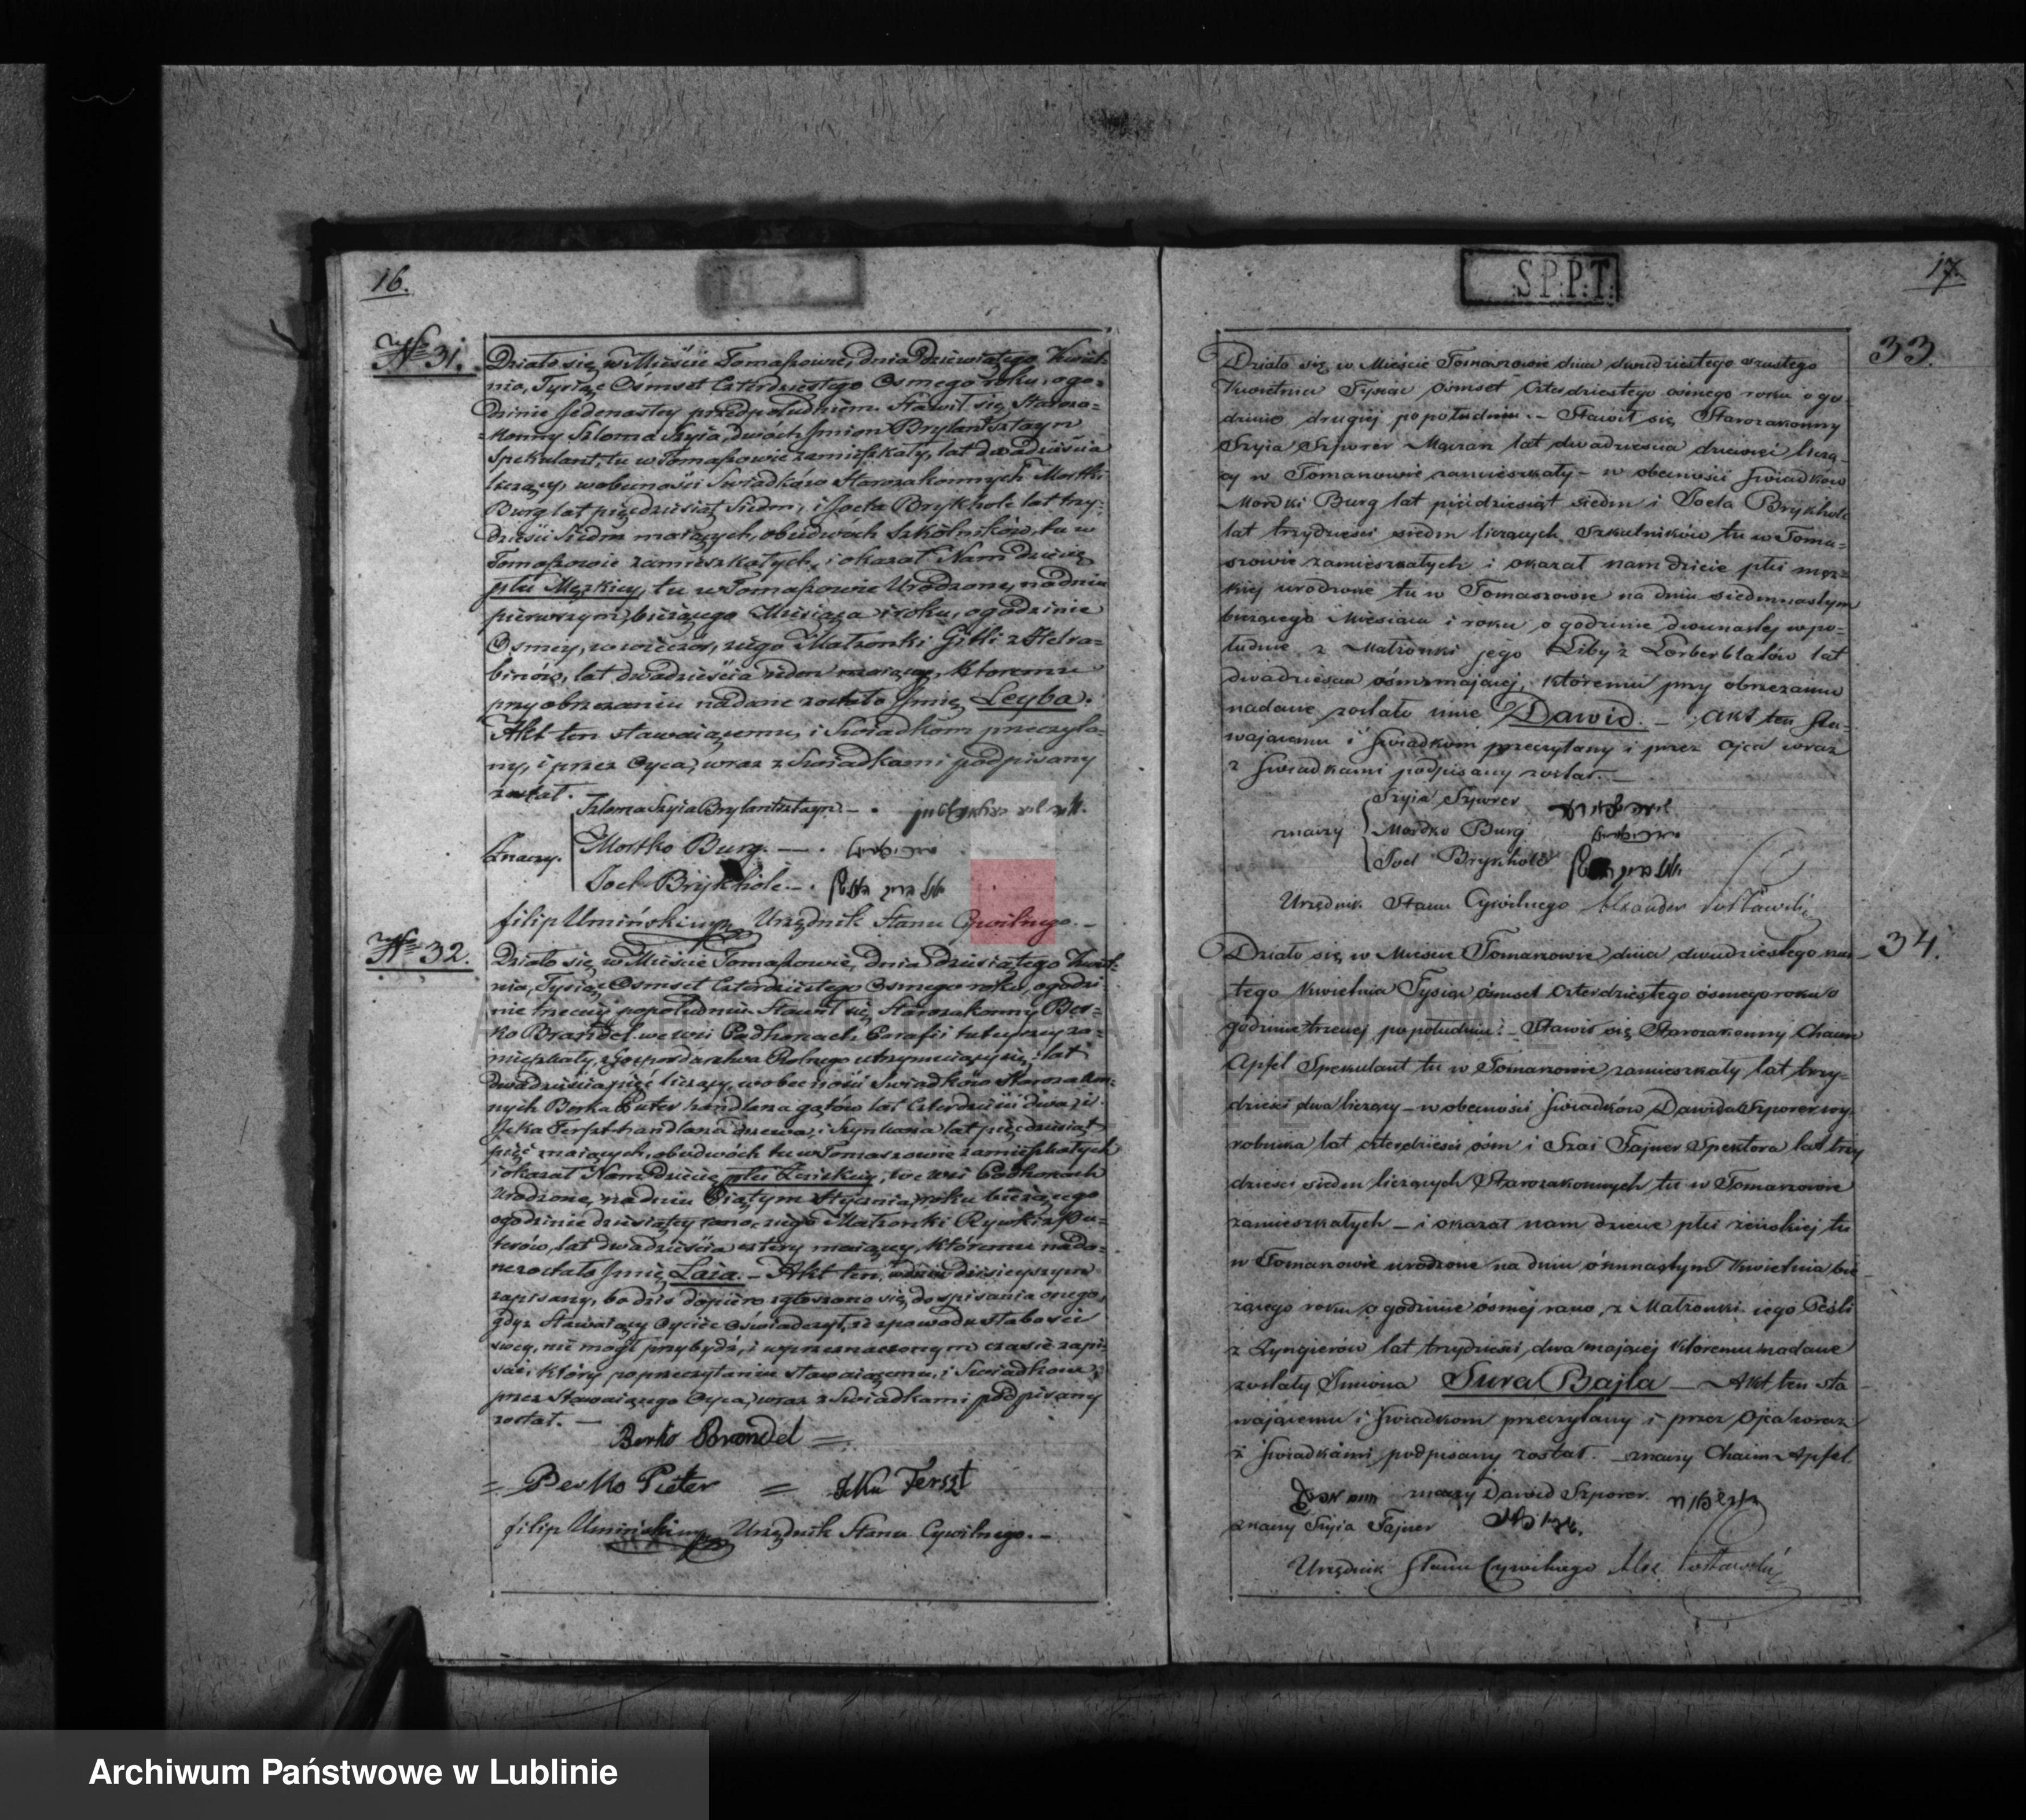 16.
№ 31.
Działo się w Mieście Tomaszowie, dnia Dziewiątego Kwiet-
nia, Tysiąc Ośmset Czterdziestego Osmego roku, ogo-
dzinie Jedenastey przedpołudniem. Stawił się Staroza-
konny Szloma Szyia, dwóch Imion Brylantsztayn
Spekulant, tu w Tomaszowie zamieszkały, lat dwadzieścia
liczący, w obecności Swiadków Starozakonnych Mortki
Burg lat pięćdziesiąt Siedm, i Joela Brykhole lat trzy-
dzieści Siedm maiących, obudwóch Szkolników, tu w
Tomaszowie zamieszkałych, i okazał Nam dziecię
płci Męzkiey, tu w Tomaszowie Urodzone, na dniu
pierwszym, bieżącego Miesiąca i roku, o godzinie
Osmey, w wieczór, z iego Małżonki Gitli z Helra-
binów, lat dwadzieścia ieden maiącey, któremu
przy obrzezaniu nadane zostało Imię Leyba.
Akt ten stawaiącemu, i Swiadkom przeczyta-
ny, i przez Oyca, wraz z Swiadkami podpisany
został.
Szloma Szyia Brylantsztayn
Znaczy. Mortko Burg.
Joel Brykhole
Filip Umiński Urzędnik Stanu Cywilnego.
№ 32.
Działo się w Mieście Tomaszowie, dnia Dziesiątego Kwiet-
nia, Tysiąc Ośmset Czterdziestego Osmego roku, ogodzi-
nie trzeciey popołudniu. Stawił się, Starozakonny Ber-
ko Brandel we wsi Podhorcach, Parafii tuteyszey za-
mieszkały, z Gospodarstwa Rolnego utrzymuiący się, lat
dwadzieścia pięć liczący, w obecności Swiadków Starozakon-
nych Berka Puter handlarza lat Czterdzieści dwa, i
Icka Ferszt handlarza drzewa, i Szynkarza lat pięćdziesiąt
pięć maiących, obudwóch tu w Tomaszowie zamieszkałych
i okazał Nam Dziecię płci Żeńskiey, we wsi Podhorcach
Urodzone, na dniu Piątym Stycznia, roku bieżącego
ogodzinie dziesiątey rano, z iego Małżonki Rywki z Pu-
terów, lat dwadzieścia cztery maiącey, któremu nada-
ne zostało Imię Laia. Akt ten, w dniu dzisieyszym
zapisany, bo dziś dopiero zgłoszono się do spisania onego,
gdyż Stawaiący Oyciec Oświadczył, iż z powodu słabości
swey, nie mógł przybydź, i w przeznaczonym czasie zapi-
sać, który po przeczytaniu stawaiącemu, i Swiadkom,
przez Stawaiącego Oyca, wraz z Swiadkami podpisany
został.
Berko Brandel
Berko Pieter = Icko Ferszt
Filip Umiński Urzędnik Stanu Cywilnego.
S.P.P.T.
17.
33.
Działo się w Mieście Tomaszowie dnia dwudziestego szustego
Kwietnia Tysiąc ośmset czterdziestego osmego roku o go-
dzinie drugiej po południu. Stawił się Starozakonny
Szyia Szporer lat dwadzieścia dziewięć liczą-
cy w Tomaszowie zamieszkały w obecności świadków
Mordki Burg lat pięćdziesiąt siedm i Joela Brykhole
lat trzydzieści siedm liczących Szkulników tu w Toma-
szowie zamieszkałych i okazał nam dziecie płci męz-
kiej urodzone tu w Tomaszowie na dniu siedmnastym
bieżącego Miesiąca i roku o godzinie dwunastej w po-
łudnie z Małżonki jego Liby z Lorberblatów lat
dwadzieścia ośm mającej, któremu przy obrzezaniu
nadane zostało imie Dawid. Akt ten sta-
wającemu i świadkom przeczytany i przez Ojca wraz
z świadkami podpisany został.
Szyia Szporer
znaczy Mordko Burg
Joel Brykhole
Urzędnik Stanu Cywilnego
34.
Działo się w Mieście Tomaszowie dnia dwudziestego
Kwietnia Tysiąc ośmset czterdziestego ósmego roku o
godzinie trzeciej po południu. Stawił się Starozakonny Chaim
Apfel Spekulant tu w Tomaszowie zamieszkały lat trzy-
dzieści dwa liczący w obecności świadków Dawida Szporer wy-
robnika lat czterdzieści ośm i Szai Fajner Spektora lat trzy
dzieści siedm liczących Starozakonnych tu w Tomaszowie
zamieszkałych i okazał nam dziecie płci żeńskiej tu
w Tomaszowie urodzone na dniu ośmnastym Kwietnia bie-
żącego roku o godzinie ósmej rano, z Małżonki iego Pesli
z Zyngierów lat trzydzieści dwa mającej któremu nadane
zostały Imiona Sura Bajla Akt ten sta
wającemu i świadkom przeczytany i przez Ojca wraz
z świadkami podpisany został. znaczy Chaim Apfel
znaczy Dawid Szporer.
znaczy Szyia Fajner
Urzędnik Stanu Cywilnego
Archiwum Państwowe w Lublinie